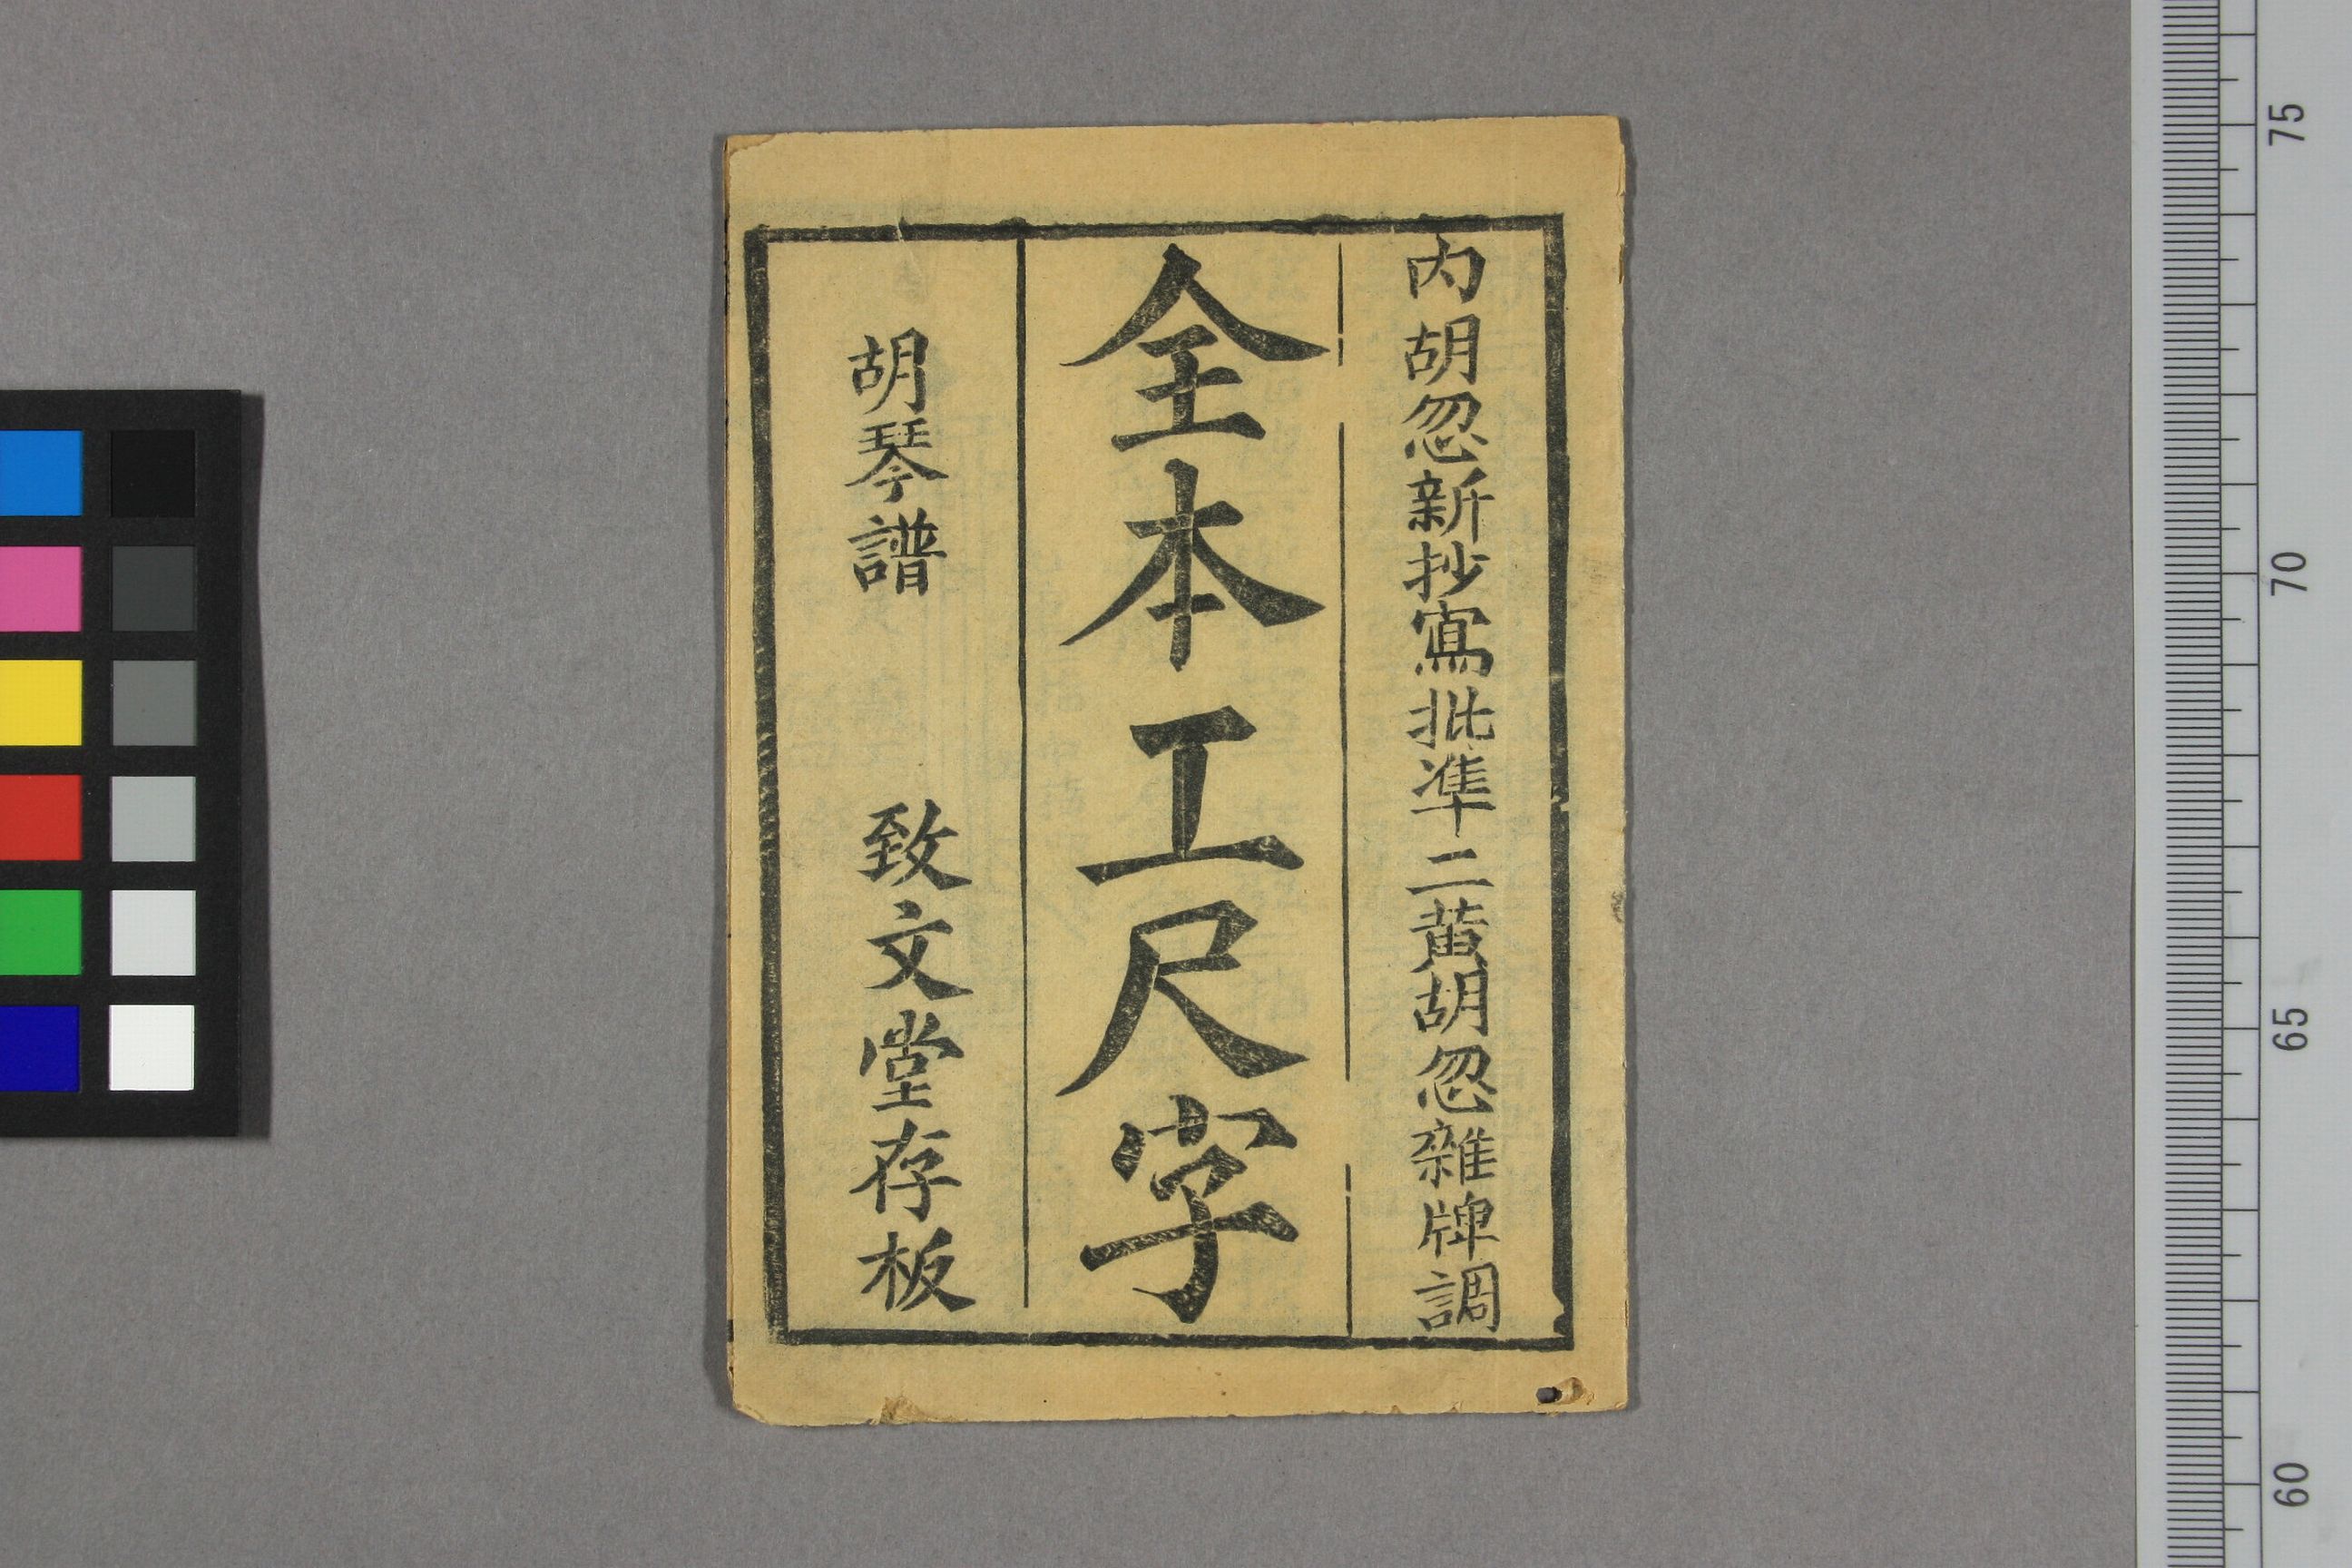 內胡忽新抄寫批準二黃胡忽雜牌調
全本工尺字
胡琴譜 致文堂存板
75
70
65
60